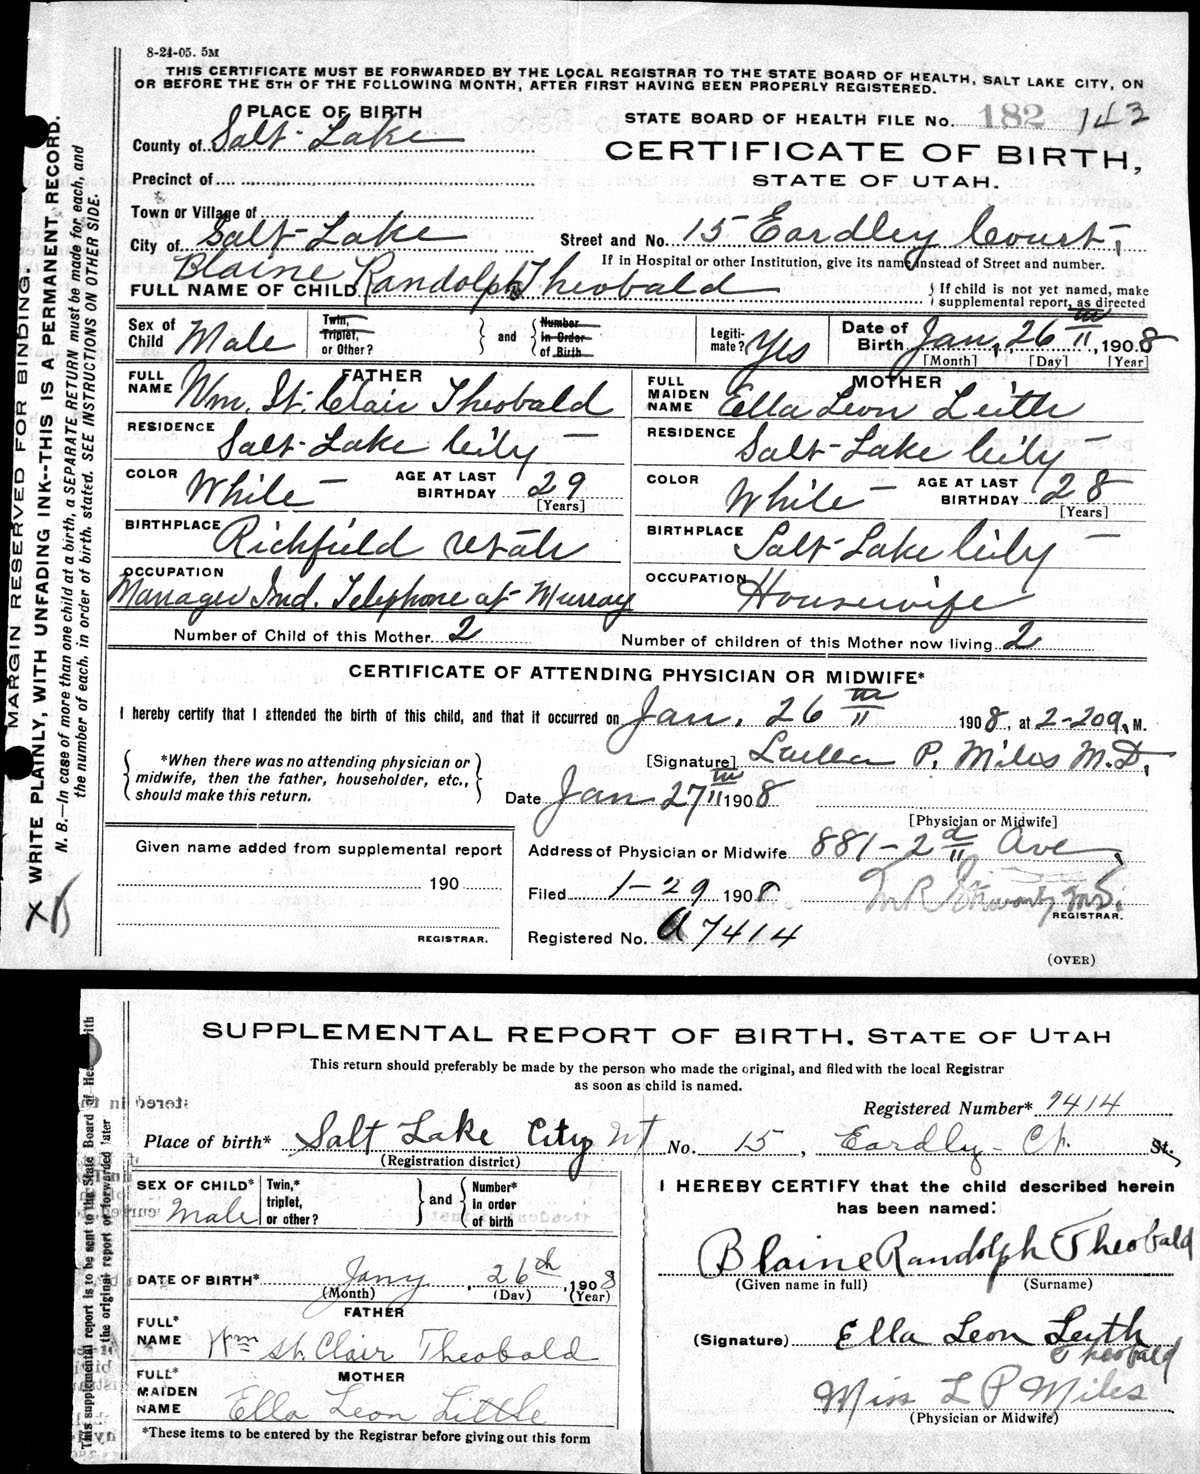 8-24-05. 5M
THIS CERTIFICATE MUST BE FORWARDED BY THE LOCAL REGISTRAR TO THE STATE BOARD OF HEALTH, SALT LAKE CITY, ON
OR BEFORE THE 5TH OF THE FOLLOWING MONTH, AFTER FIRST HAVING BEEN PROPERLY REGISTERED.
PLACE OF BIRTH
STATE BOARD OF HEALTH FILE NO. 182 143
County of Salt Lake
CERTIFICATE OF BIRTH,
STATE OF UTAH.
Precinct of
Town or Village of
City of Salt Lake
Street and No. 15 Eardley Court,
If in Hospital or other Institution, give its name instead of Street and number.
FULL NAME OF CHILD Blaine Randolph Theobald
If child is not yet named, make
supplemental report, as directed
Sex of Child Male
Twin, Triplet, or Other?
and
Number in Order of Birth
Legitimate? Yes
Date of Birth Jan. 26th, 1908
[Month] [Day] [Year]
FATHER
FULL NAME Wm. St. Clair Theobald
RESIDENCE Salt Lake City
COLOR White
AGE AT LAST BIRTHDAY 29
[Years]
BIRTHPLACE Richfield Utah
OCCUPATION
Manager Ind. Telephone at Murray
MOTHER
FULL MAIDEN NAME Ella Leon Leith
RESIDENCE Salt Lake City
COLOR White
AGE AT LAST BIRTHDAY 28
[Years]
BIRTHPLACE Salt Lake City
OCCUPATION Housewife
Number of Child of this Mother 2
Number of children of this Mother now living 2
CERTIFICATE OF ATTENDING PHYSICIAN OR MIDWIFE*
I hereby certify that I attended the birth of this child, and that it occurred on Jan. 26th 1908, at 2-20 a. M.
*When there was no attending physician or
midwife, then the father, householder, etc.,
should make this return.
[Signature] Luella P. Miles M.D.
Date Jan 27th 1908
[Physician or Midwife]
Given name added from supplemental report
190
REGISTRAR.
Address of Physician or Midwife 881-2d Ave.
Filed 1-29 1908
REGISTRAR.
Registered No. A7414
(OVER)
MARGIN RESERVED FOR BINDING.
WRITE PLAINLY, WITH UNFADING INK--THIS IS A PERMANENT RECORD.
N. B.—In case of more than one child at a birth, a SEPARATE RETURN must be made for each, and
the number of each, in order of birth, stated. SEE INSTRUCTIONS ON OTHER SIDE.
SUPPLEMENTAL REPORT OF BIRTH, STATE OF UTAH
This return should preferably be made by the person who made the original, and filed with the local Registrar
as soon as child is named.
Registered Number* 7414
Place of birth* Salt Lake City UT No. 15, Eardly Ct. St.
(Registration district)
SEX OF CHILD* Male
Twin,* triplet, or other?
and
Number* in order of birth
DATE OF BIRTH* Jany, 26th, 1908
(Month) (Day) (Year)
FATHER
FULL* NAME Wm St. Clair Theobald
MOTHER
FULL* MAIDEN NAME Ella Leon Little
*These items to be entered by the Registrar before giving out this form
I HEREBY CERTIFY that the child described herein
has been named:
Blaine Randolph Theobald
(Given name in full) (Surname)
(Signature) Ella Leon Leith
Theobald
Miss L P Miles
(Physician or Midwife)